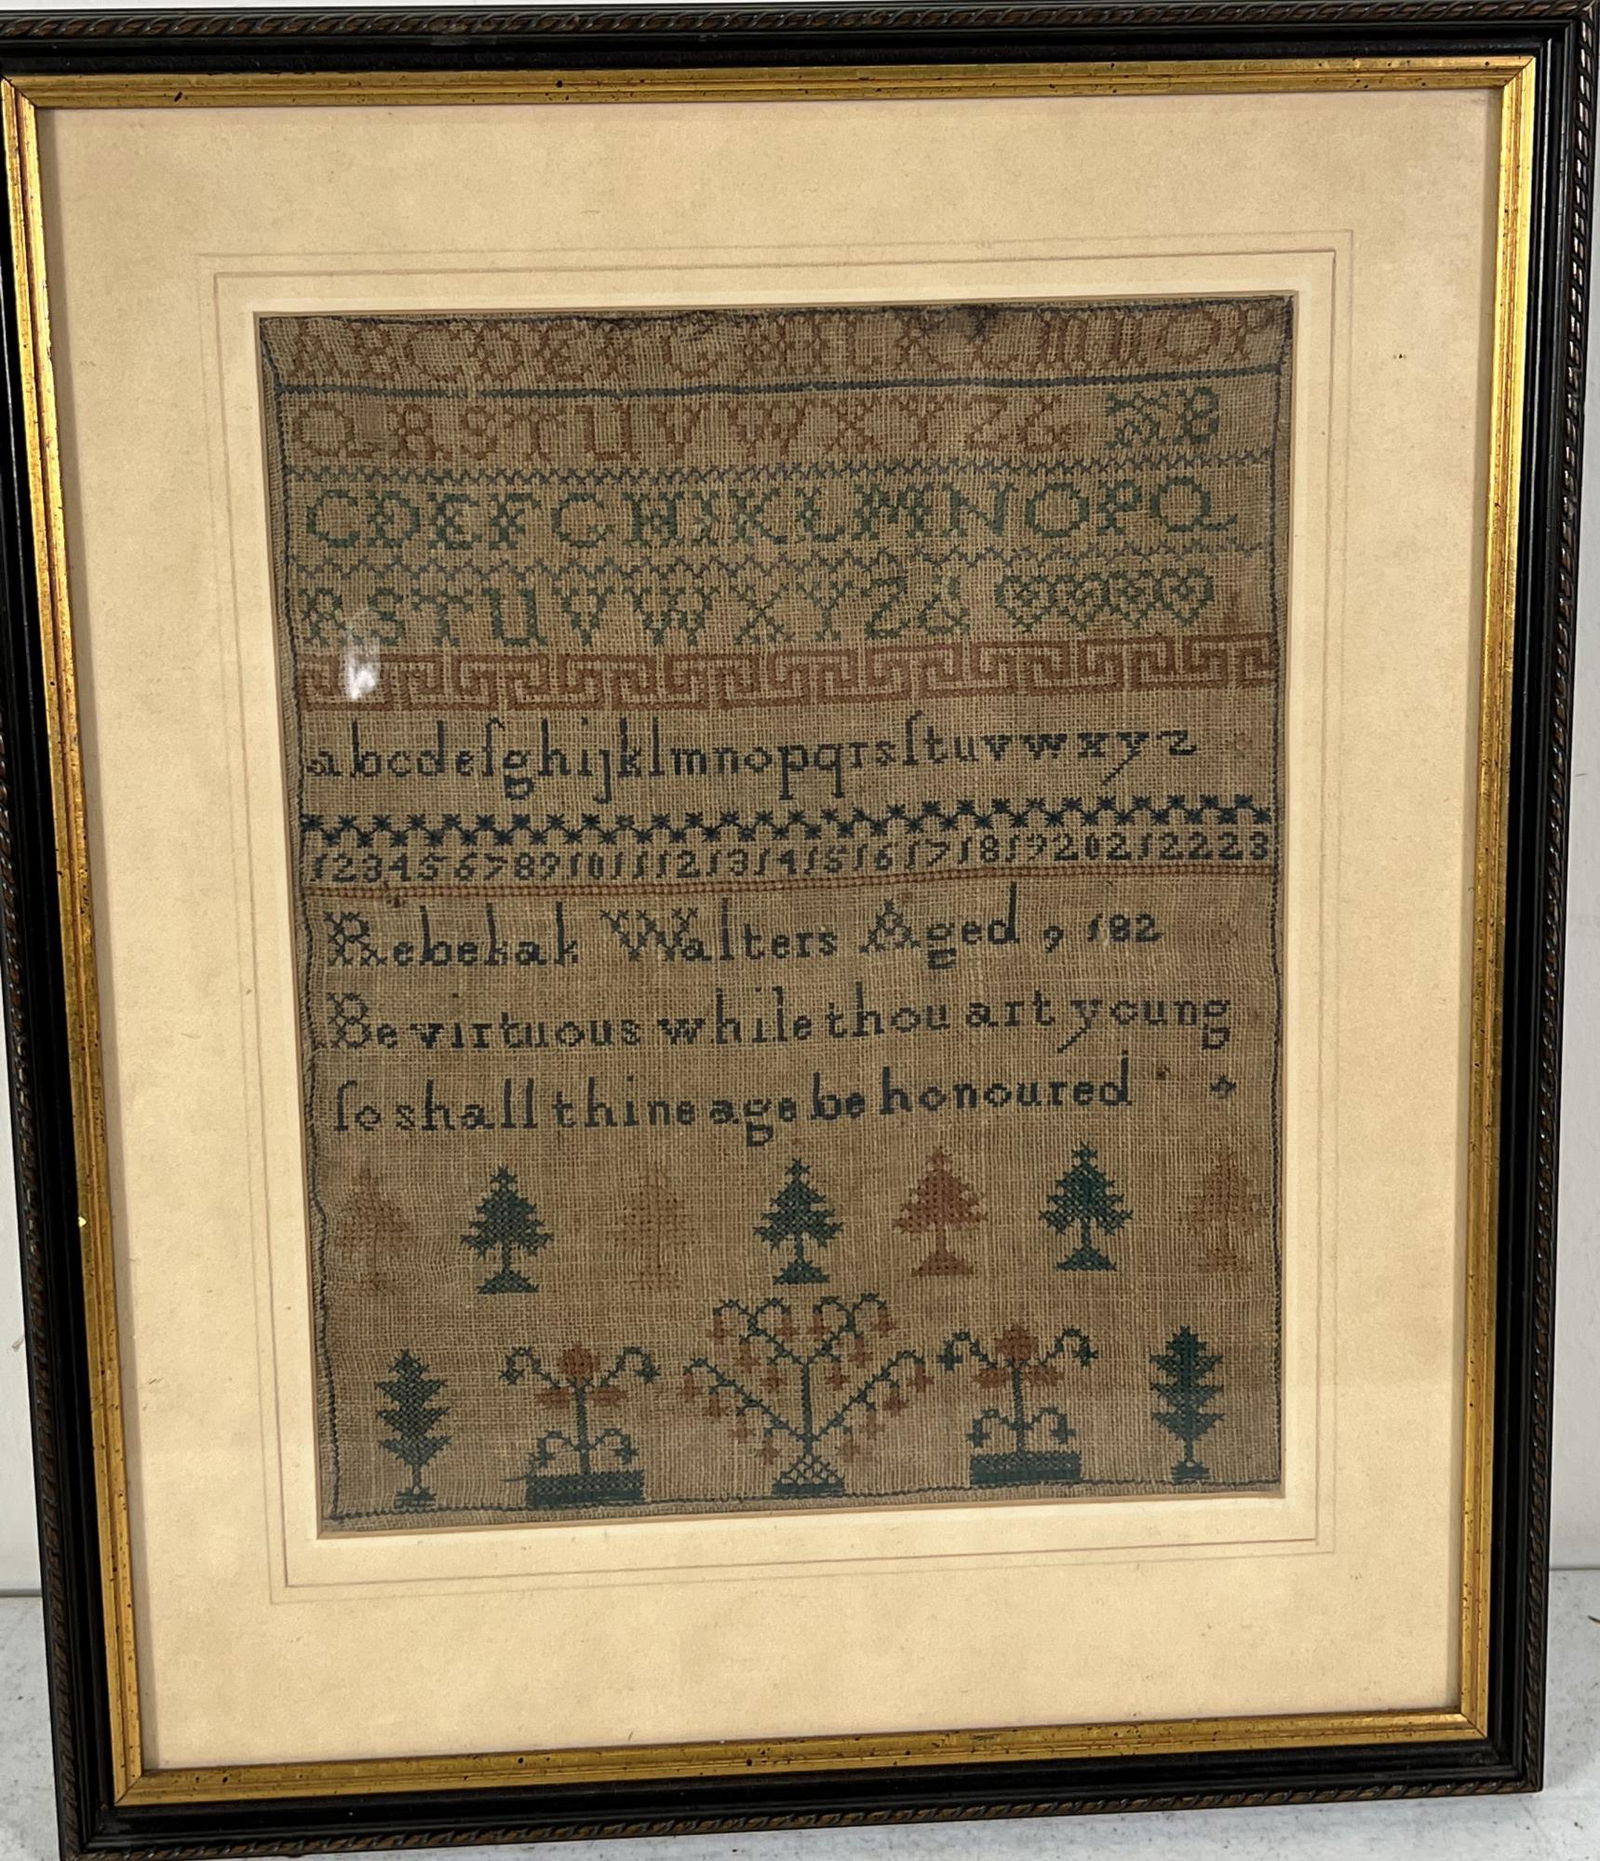 ABCDEFGHIKLMNOP
QRSTUVWXYZ& AB
CDEFGHIKLMNOPQ
RSTUVWXYZ&
abcdefghijklmnopqrsſtuvwxyz
1234567891011121314151617181920212223
Rebekah Walters Aged 9 182
Be virtuous while thou art young
ſo shall thine age be honoured